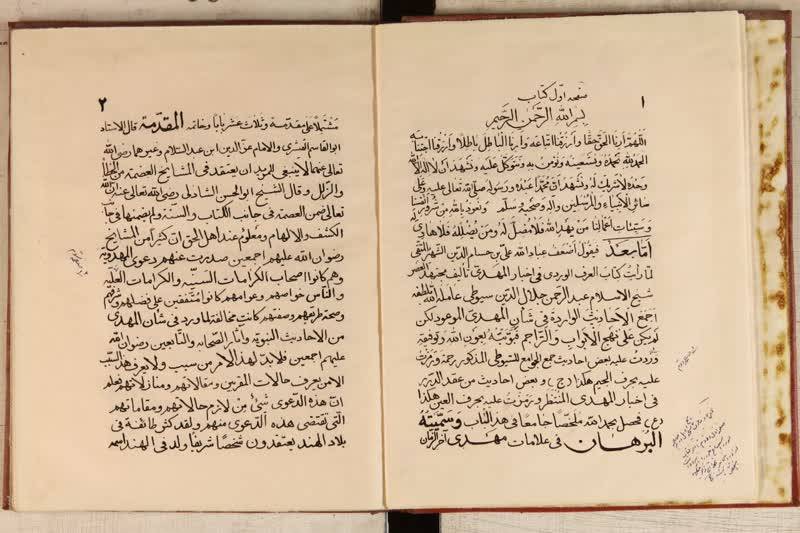 ١
صفحه اول كتاب
بسم الله الرحمن الرحيم
اللهم ارنا الحق حقا وارزقنا اتباعه وارنا الباطل باطلا وارزقنا اجتنابه
الحمد لله نحمده ونستعينه ونؤمن به ونتوكل عليه ونشهد ان لا اله الا الله
وحده لا شريك له ونشهد ان محمدا عبده ورسوله صلى الله تعالى عليه وعلى
سائر الانبياء والمرسلين وآله وصحبه وسلم ونعوذ بالله من شرور انفسنا
وسيئات اعمالنا من يهد الله فلا مضل له ومن يضلله فلا هادى له
اما بعد فيقول اضعف عباد الله على بن حسام الدين الشهير بالمتقى
لما رأيت كتاب العرف الوردى فى اخبار المهدى تأليف مجتهد العصر
شيخ الاسلام عبد الرحمن جلال الدين سيوطى عامله الله بلطفه
اجمع الاحاديث الواردة فى شان المهدى الموعود لكن
لم يكن على نهج الابواب والتراجم فبوبته بعون الله وتوفيقه
وزدت عليه بعض احاديث جمع الجوامع للسيوطى المذكور رحمه ورمزت
عليه بحرف الجيم هكذا (ج) وبعض احاديث من عقد الدرر
فى اخبار المهدى المنتظر ورمزت عليه بحرف العين هكذا
(ع) فحصل بحمد الله ملخصا جامعا فى هذا الباب وسميته
البرهان فى علامات مهدى آخر الزمان
٢
مشتملا على مقدمة وثلاث عشر بابا وخاتمه المقدمة قال الاستاد
ابو القاسم القشيرى والامام عز الدين ابن عبد السلام وغيرهما رضى الله
تعالى عنهما لا ينبغى لمريد ان يعتقد فى المشايخ العصمة من الخطا
والزلل وقال الشيخ ابو الحسن الشاذلى رضى الله تعالى عنه ان الله
تعالى ضمن العصمة فى جانب الكتاب والسنة ولم يضمنها فى جانب
الكشف والالهام ومعلوم عند اهل الحق ان كثيرا من المشايخ
رضوان الله عليهم اجمعين صدرت عنهم دعوى المهدوية
وهم كانوا اصحاب الكرامات السنية والكرامات العلية
والناس خواصهم وعوامهم كانوا متفقين على فضلهم وشرفهم
وصحة طريقهم وصفتهم كانت مخالفة لما ورد فى شان المهدى
من الاحاديث النبوية وآثار الصحابه والتابعين رضوان الله
عليهم اجمعين فلا بد لهذا الامر من سبب ولا يعرف هذا السبب
الا من يعرف حالات المقربين ومقالاتهم ومنازلاتهم يعلم
ان هذه الدعوى شئ من لازم حالاتهم ومقاماتهم
التى تقتضى هذه الدعوى منهم ولقد كثر طائفة فى
بلاد الهند يعتقدون شخصا شريفا ولد فى الهند اسمه